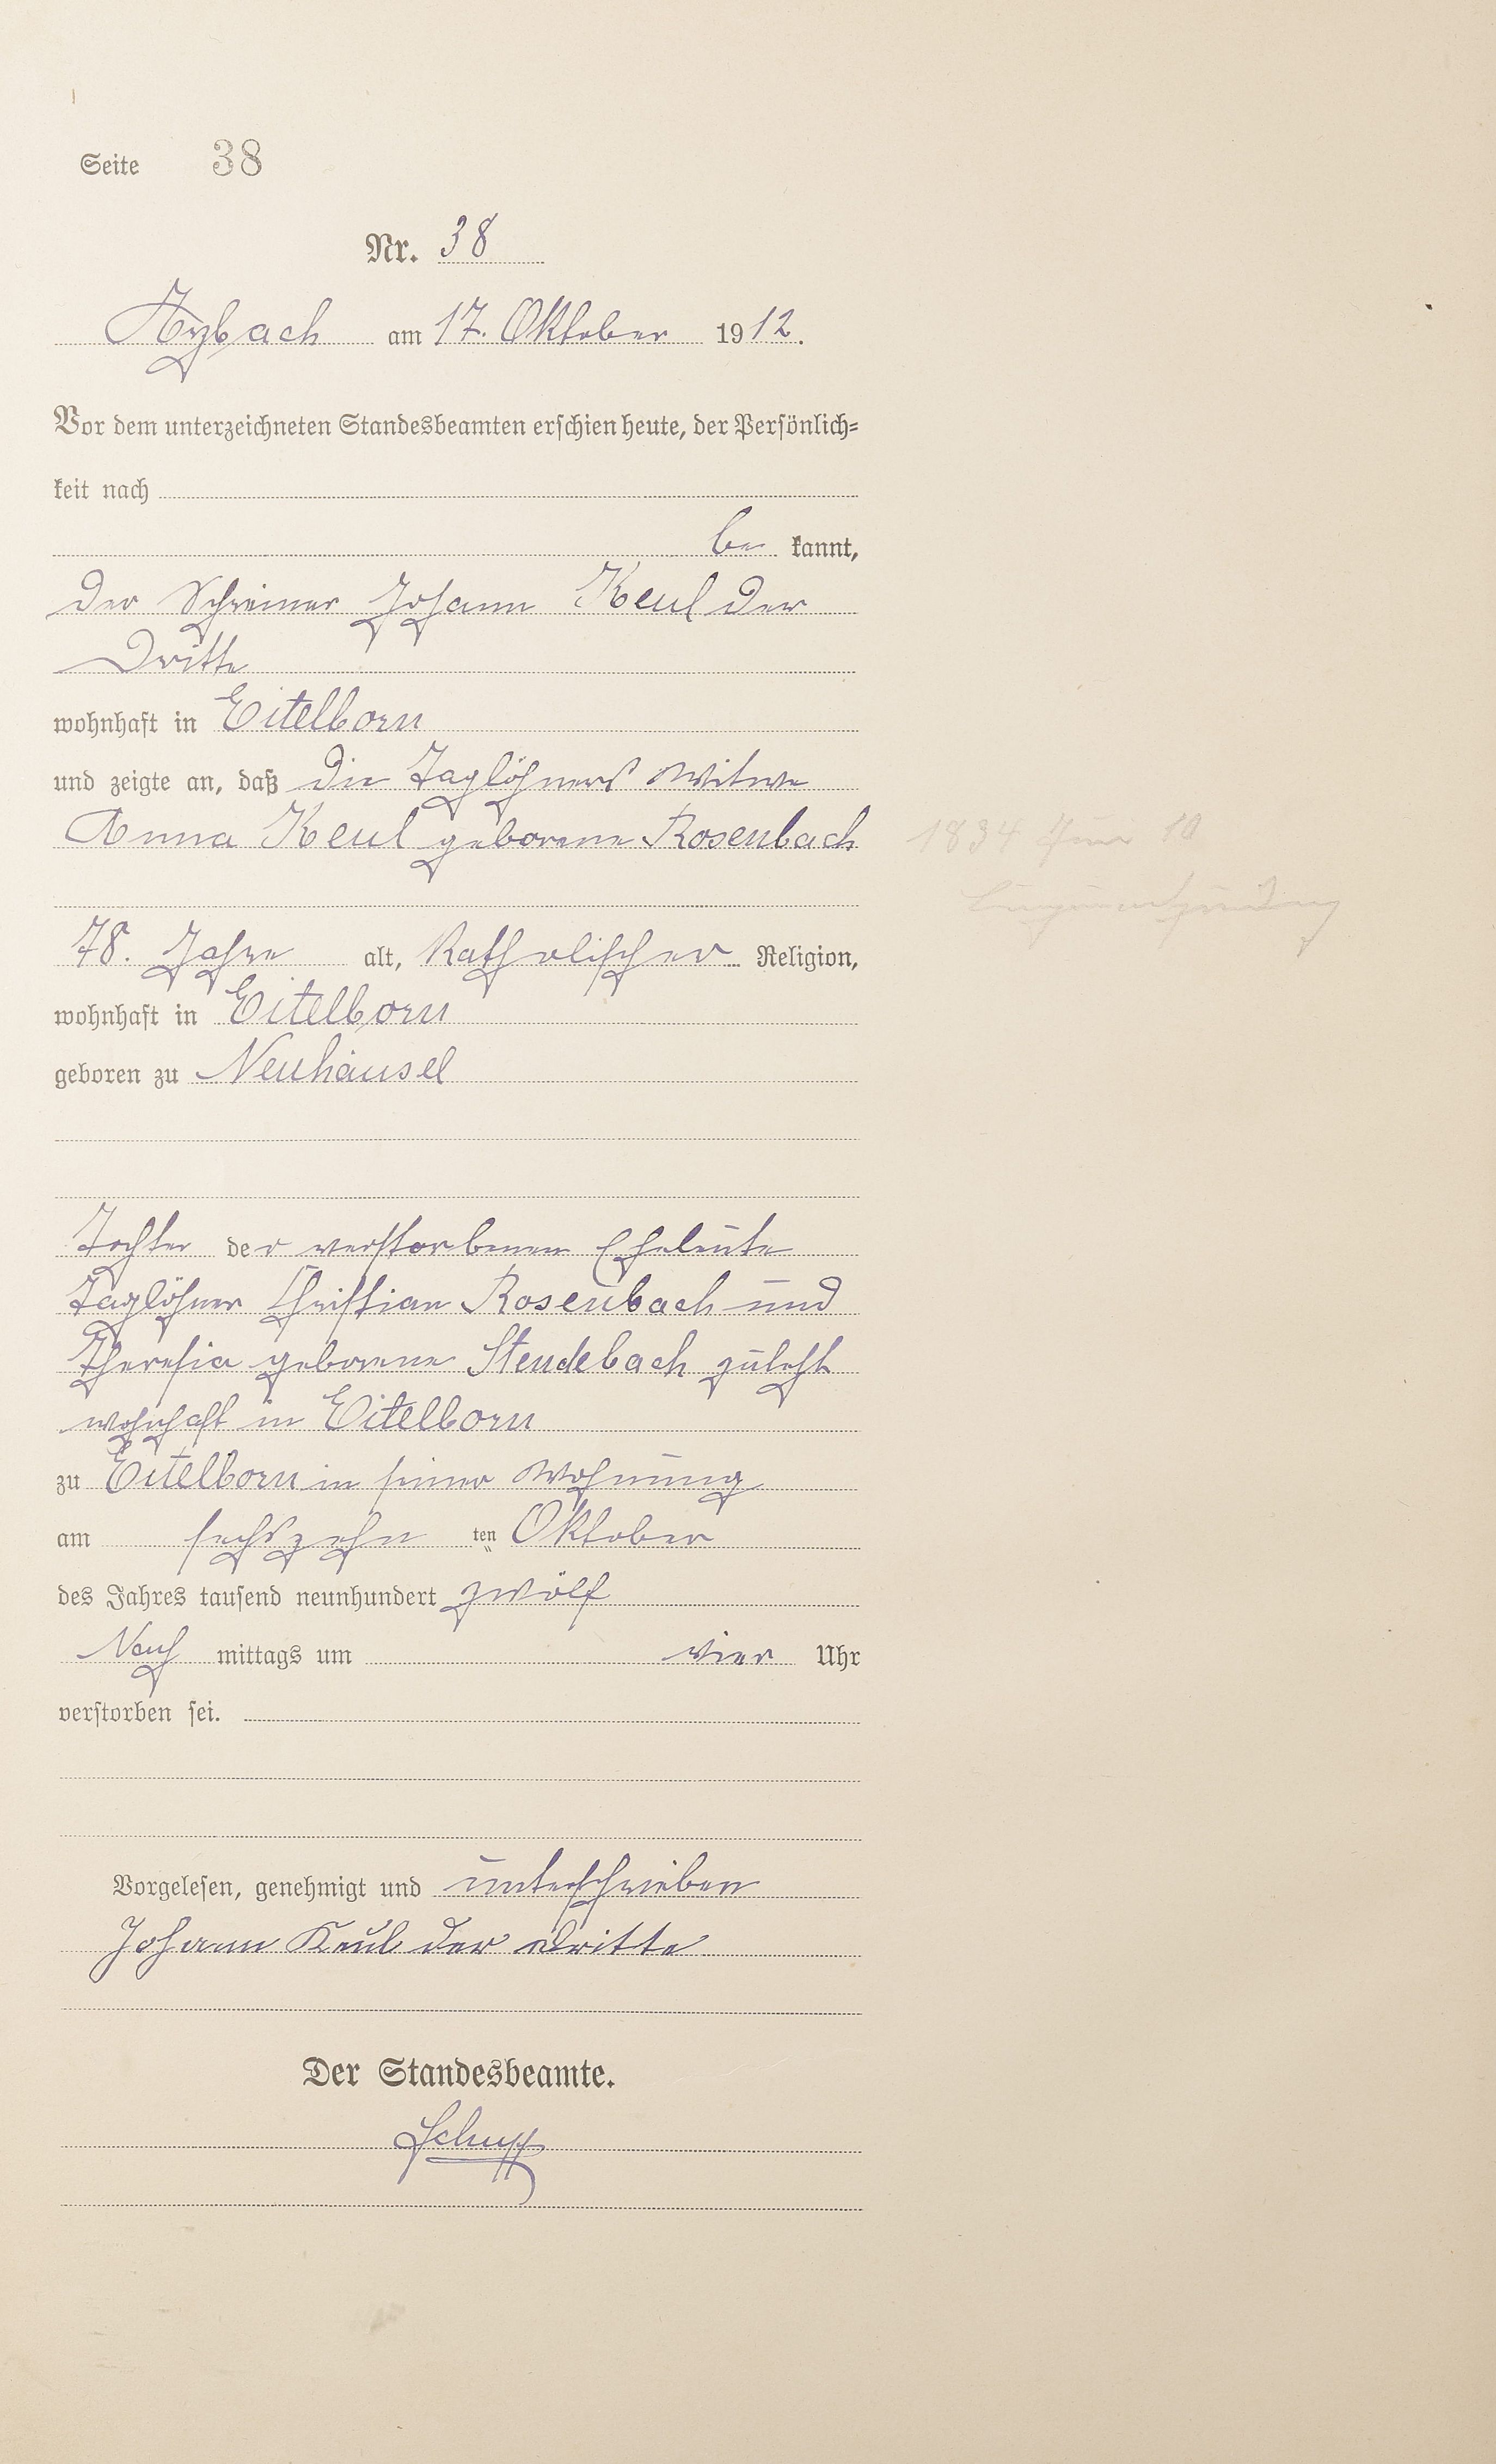 Seite 38
Nr. 38
Arzbach am 17. Oktober 1912.
Vor dem unterzeichneten Standesbeamten erschien heute, der Persönlich=
keit nach
be kannt,
der Schreiner Johann Keul der
Dritte
wohnhaft in Eitelborn
und zeigte an, daß die Taglöhners Witwe
Anna Keul geborene Rosenbach
1834 Juni 10
Lungenentzündung
78. Jahre alt, Katholischer Religion,
wohnhaft in Eitelborn
geboren zu Neuhäusel
Tochter der verstorbenen Eheleute
Taglöhner Christian Rosenbach und
Theresia geborene Stendebach zuletzt
wohnhaft in Eitelborn
zu Eitelborn in seiner Wohnung
am sechszehn ten Oktober
des Jahres tausend neunhundert zwölf
Nach mittags um vier Uhr
verstorben sei.
Vorgelesen, genehmigt und unterschrieben
Johann Keul der Dritte
Der Standesbeamte.
Schupp